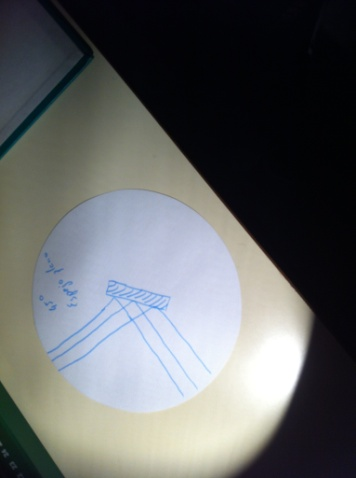 Espejo plano
45°